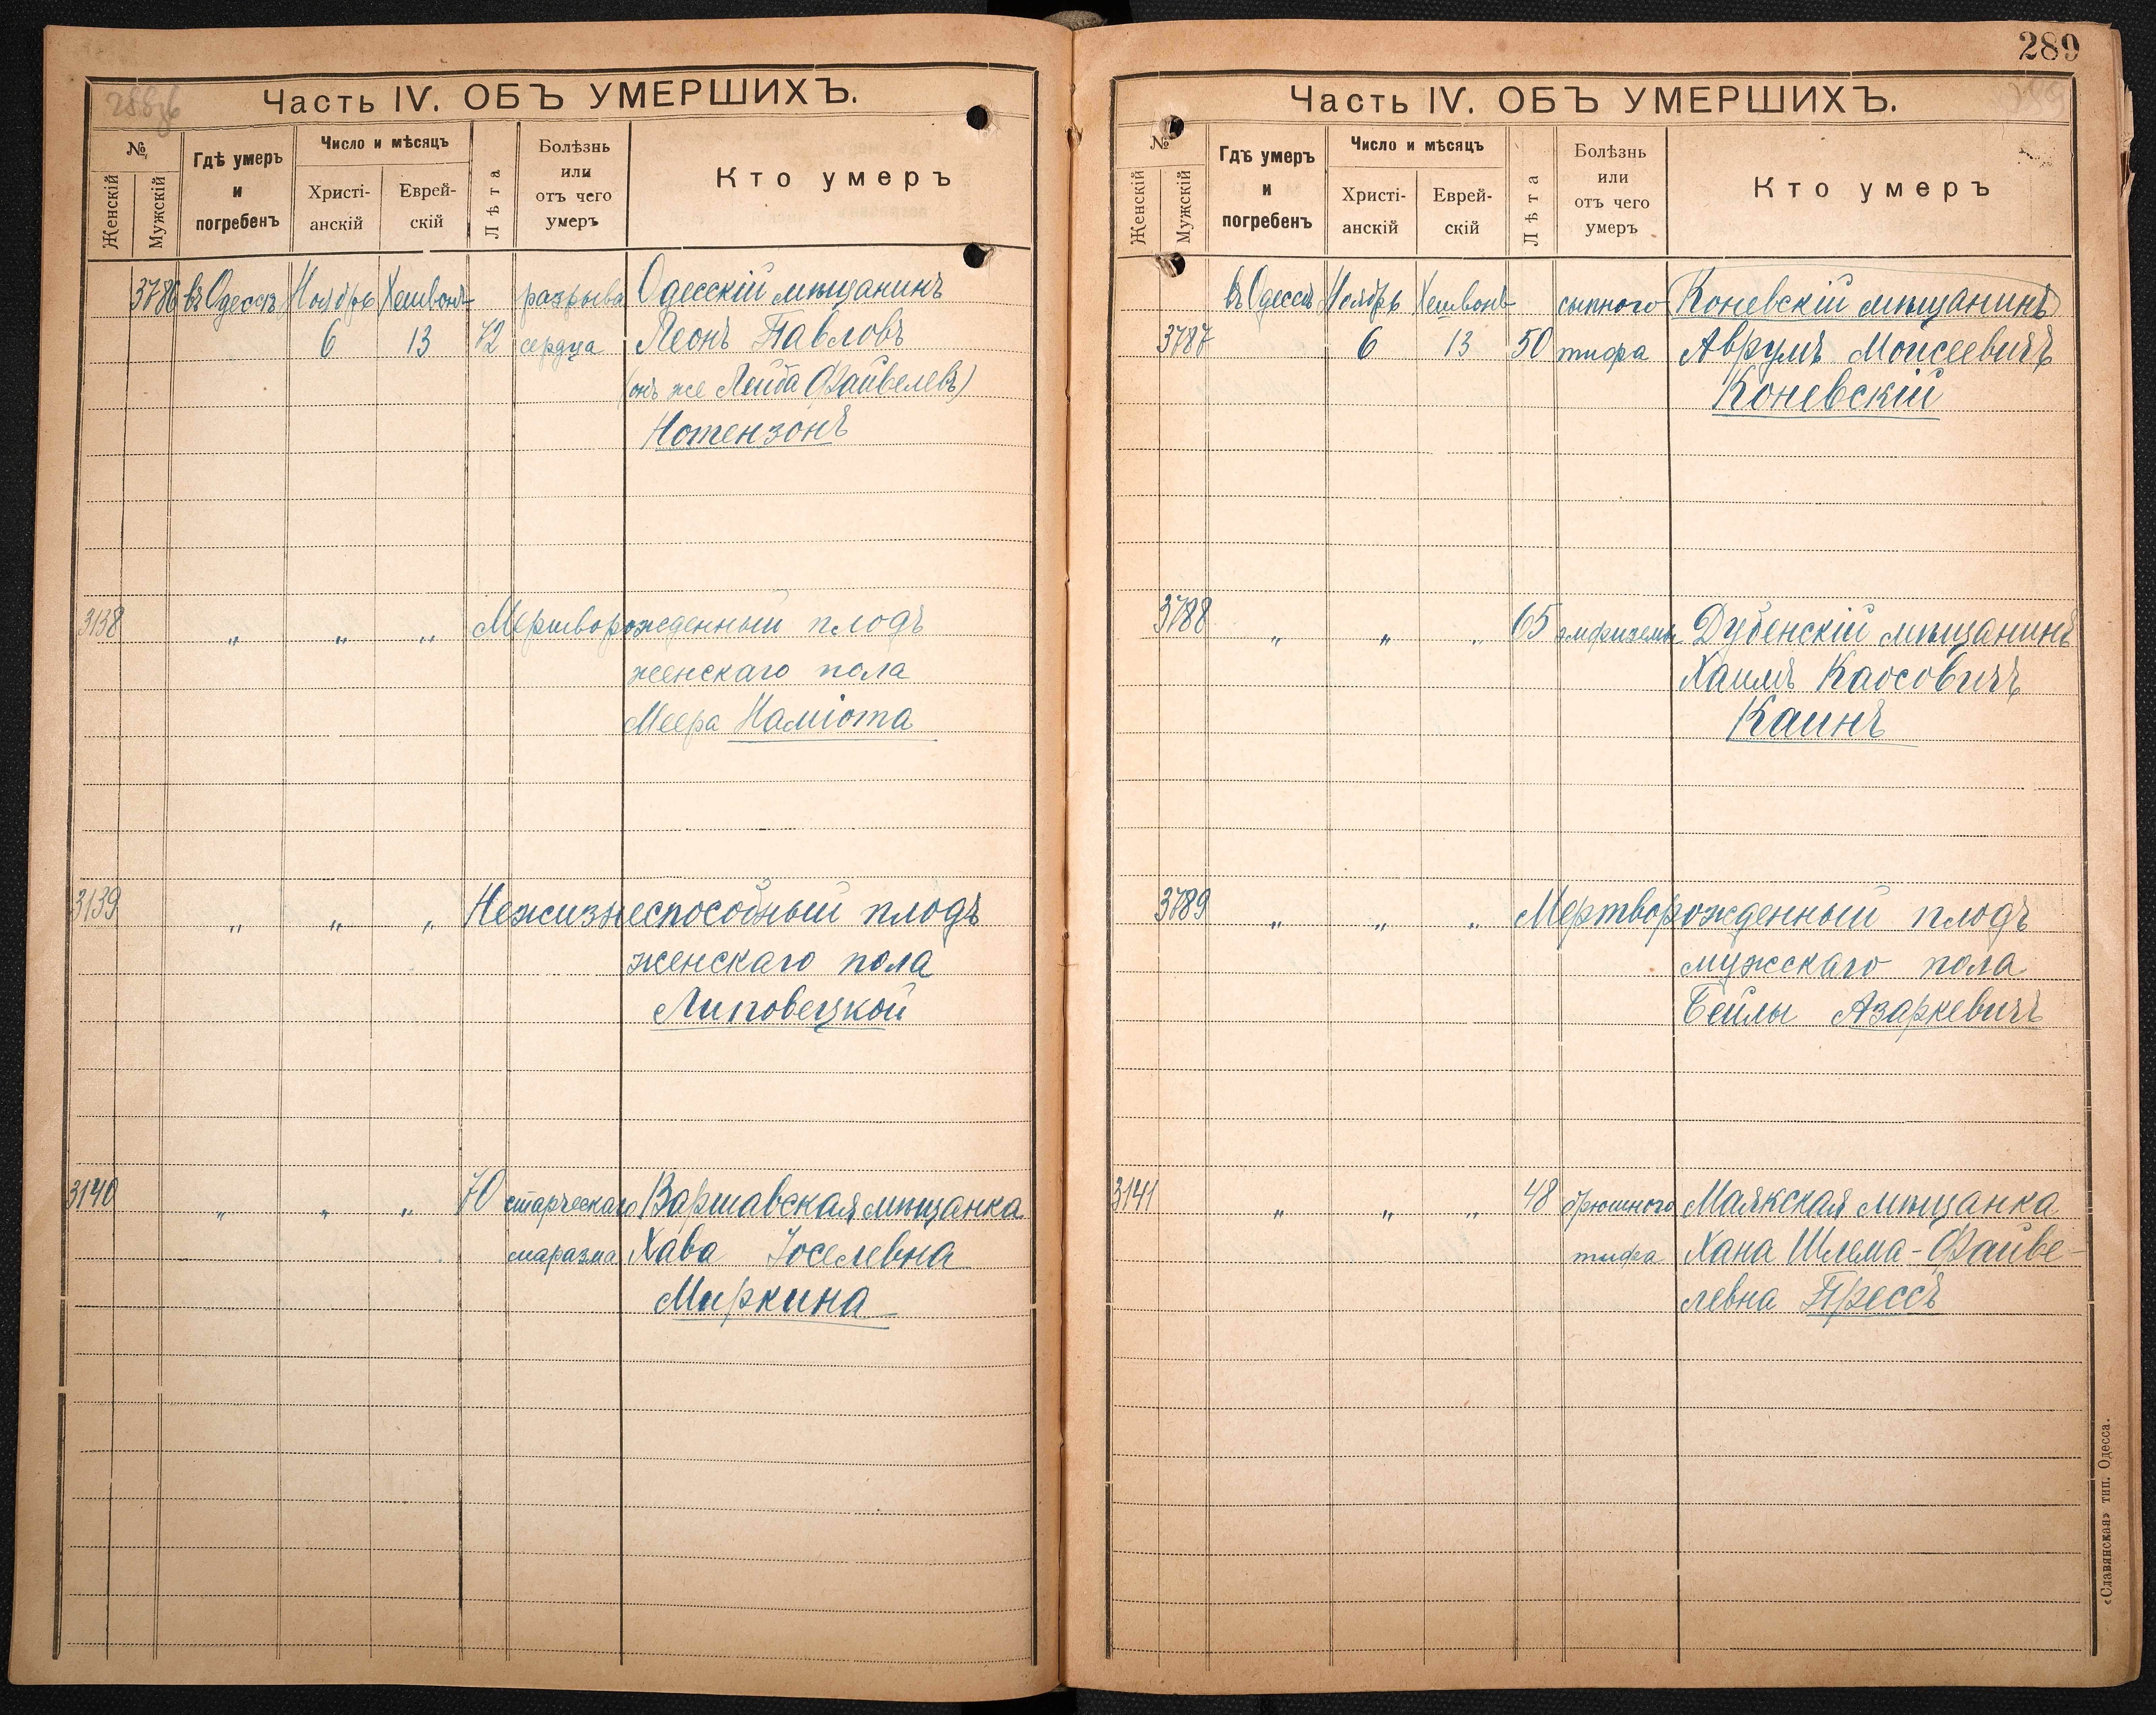 Часть IV. ОБЪ УМЕРШИХЪ.
№
Женскій
Мужскій
Гдѣ умеръ
и
погребенъ
Число и мѣсяцъ
Христі-
анскій
Еврей-
скій
Лѣта
Болѣзнь
или
отъ чего
умеръ
Кто умеръ
3786 въ Одессѣ Ноябрь Хешвонъ разрыва Одесскій мѣщанинъ
6 13 72 сердца Леонъ Павловъ
(онъ же Лейба Файвелевъ)
Нотензонъ
3138 " " " Мертворожденный плодъ
женскаго пола
Меера Наміота
3139 " " " Нежизнеспособный плодъ
женскаго пола
Липовецкой
3140 " " " 70 старческаго Варшавская мѣщанка
маразма Хава Іоселевна
Миркина
289
Часть IV. ОБЪ УМЕРШИХЪ.
№
Женскій
Мужскій
Гдѣ умеръ
и
погребенъ
Число и мѣсяцъ
Христі-
анскій
Еврей-
скій
Лѣта
Болѣзнь
или
отъ чего
умеръ
Кто умеръ
въ Одессѣ Ноябрь Хешвонъ сыпного Коневскій мѣщанинъ
3787 6 13 50 тифа Аврумъ Моисеевичъ
Коневскій
3788 " " " 65 эмфиземы Дубенскій мѣщанинъ
Хаимъ
Каинъ
3789 " " " Мертворожденный плодъ
мужскаго пола
Бейлы Азаркевичъ
3141 " " " 48 брюшного Маякская мѣщанка
тифа Хана Шлема-Файве-
левна Прессъ
«Славянская» тип. Одесса.